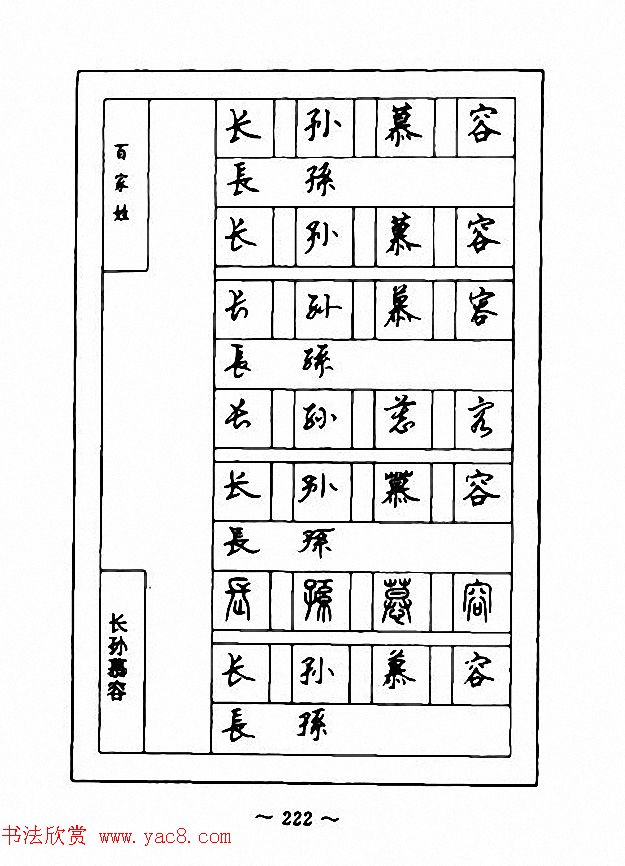 百家姓
长孙慕容
长 孙 慕 容
長 孫
长 孙 慕 容
长 孙 慕 容
長 孫
长 孙 慕 容
长 孙 慕 容
長 孫
長 孫 慕 容
长 孙 慕 容
長 孫
~ 222 ~
书法欣赏 www.yac8.com